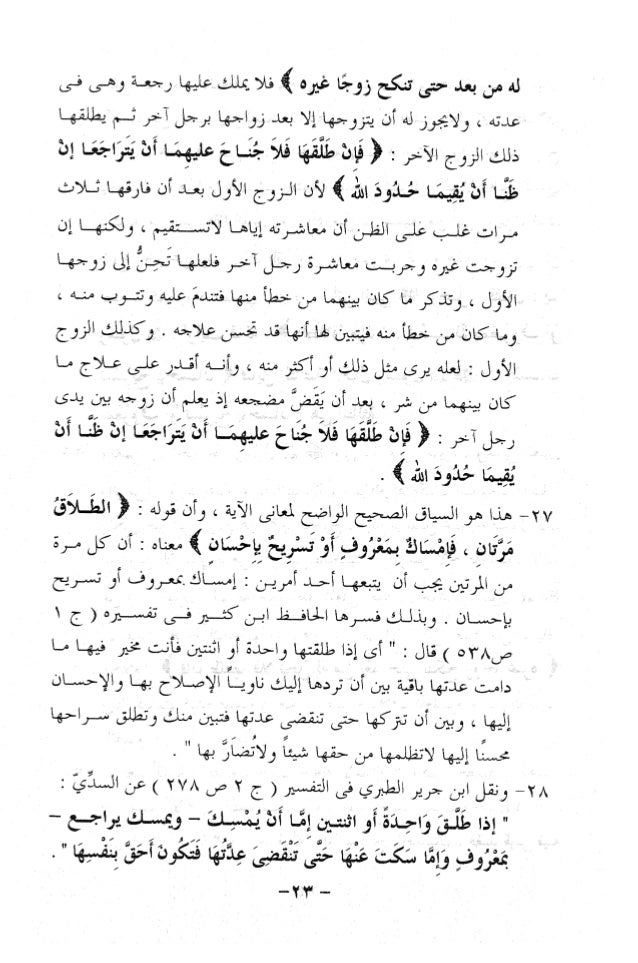 له من بعد حتى تنكح زوجًا غيره ﴾ فلا يملك عليها رجعة وهى فى
عدته ، ولايجوز له أن يتزوجها إلا بعد زواجها برجل آخر ثم يطلقها
ذلك الزوج الآخر : ﴿ فَإِنْ طَلَّقَهَا فَلاَ جُنَاحَ عليهِمَا أَنْ يَتَرَاجَعَا إنْ
ظَنَّا أَنْ يُقِيمَا حُدُودَ الله ﴾ لأن الزوج الأول بعد أن فارقها ثلاث
مرات غلب على الظن أن معاشرته إياها لاتستقيم ، ولكنها إن
تزوجت غيره وجربت معاشرة رجل آخر فلعلها تَحِنُّ إلى زوجها
الأول ، وتذكر ما كان بينهما من خطأ منها فتندم عليه وتتوب منه ،
وما كان من خطأ منه فيتبين لها أنها قد تحسن علاجه . وكذلك الزوج
الأول : لعله يرى مثل ذلك أو أكثر منه ، وأنه أقدر على علاج ما
كان بينهما من شر ، بعد أن يَقَضَّ مضجعه إذ يعلم أن زوجه بين يدى
رجل آخر : ﴿ فَإِنْ طَلَّقَهَا فَلاَ جُنَاحَ عليهِمَا أَنْ يَتَرَاجَعَا إنْ ظَنَّا أَنْ
يُقِيمَا حُدُودَ الله ﴾ .
٢٧- هذا هو السياق الصحيح الواضح لمعانى الآية ، وأن قوله : ﴿ الطَّلاَقُ
مَرَّتَانِ ، فَإمْسَاكٌ بِمَعْرُوفٍ أَوْ تَسْرِيحٌ بِإِحْسَانٍ ﴾ معناه : أن كل مرة
من المرتين يجب أن يتبعها أحد أمرين : إمساك بمعروف أو تسريح
بإحسان . وبذلك فسرها الحافظ ابن كثير فى تفسيره ( ج ١
ص٥٣٨ ) قال : " أى إذا طلقتها واحدة أو اثنتين فأنت مخير فيها ما
دامت عدتها باقية بين أن تردها إليك ناوياً الإصلاح بها والإحسان
إليها ، وبين أن تتركها حتى تنقضى عدتها فتبين منك وتطلق سراحها
محسنًا إليها لاتظلمها من حقها شيئاً ولاتُضَارَّ بها " .
٢٨- ونقل ابن جرير الطبري فى التفسير ( ج ٢ ص ٢٧٨ ) عن السدِّيّ :
" إذا طَلَّقَ وَاحِدَةً أو اثنتين إمَّا أَنْ يُمْسِكَ – ويمسك يراجع –
بِمَعْرُوفٍ وَإِمَّا سَكَتَ عَنْهَا حَتَّى تَنْقَضِىَ عِدَّتُهَا فَتَكُونَ أَحَقَّ بِنَفْسِهَا " .
- ٢٣-